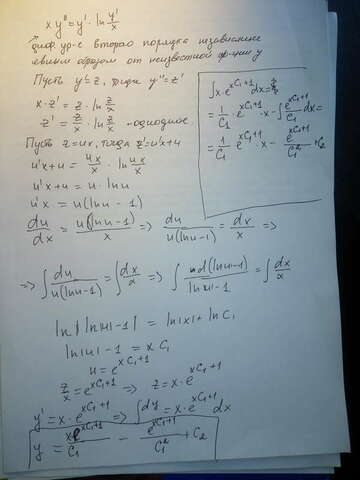 x y" = y' · ln y'/x
диф. ур-е второго порядка независимое
явным образом от неизвестной ф-ции y
Пусть y'=z, тогда y"=z'
x·z' = z·ln z/x
z' = z/x · ln z/x - однородное.
Пусть z=ux, тогда z'=u'x+u
u'x+u = ux/x · ln ux/x
u'x+u = u·ln u
u'x = u(ln u - 1)
du/dx = u(ln u - 1)/x => du/u(ln u - 1) = dx/x =>
=> ∫ du/u(ln u - 1) = ∫ dx/x => ∫ d(ln u - 1)/ln u - 1 = ∫ dx/x
ln| ln|u| - 1| = ln|x| + ln C₁
ln|u| - 1 = x C₁
u = e^(xC₁+1)
z/x = e^(xC₁+1) => z = x·e^(xC₁+1)
y' = x·e^(xC₁+1) => ∫dy = ∫x·e^(xC₁+1) dx
y = xe^(xC₁+1)/C₁ - e^(xC₁+1)/C₁² + C₂
∫x·e^(xC₁+1) dx =
= 1/C₁ · e^(xC₁+1) · x - ∫ e^(xC₁+1)/C₁ dx =
= 1/C₁ · e^(xC₁+1) · x - e^(xC₁+1)/C₁² + C₂